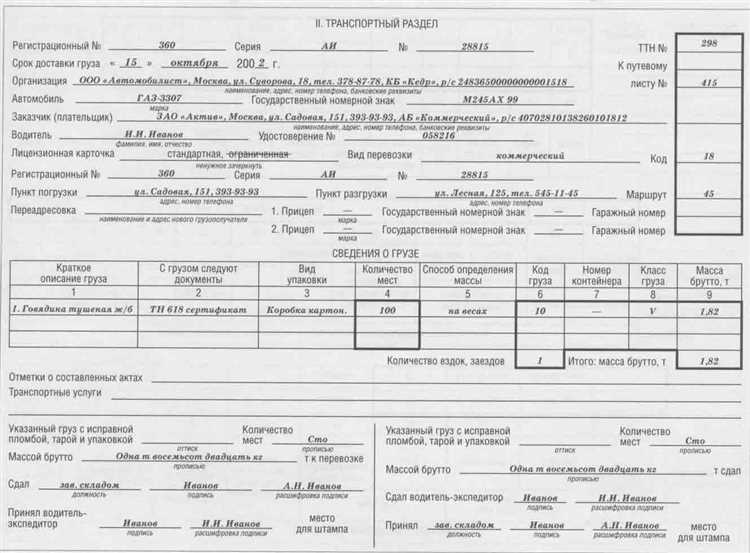 II. ТРАНСПОРТНЫЙ РАЗДЕЛ
Регистрационный № 360 Серия АИ № 28815 ТТН № 298
Срок доставки груза « 15 » октября 200 2 г. К путевому
Организация ООО «Автомобилист», Москва, ул. Суворова, 18, тел. 378-87-78, КБ «Кедр», р/с 24836500000000001518 листу № 415
наименование, адрес, номер телефона, банковские реквизиты
Автомобиль ГАЗ-3307 Государственный номерной знак М245АХ 99
марка
Заказчик (плательщик) ЗАО «Актив», Москва, ул. Садовая, 151, 393-93-93, АБ «Коммерческий», р/с 40702810138260101812
наименование, адрес, номер телефона, банковские реквизиты
Водитель И.И. Иванов Удостоверение № 058216
фамилия, имя, отчество
Лицензионная карточка стандартная, ограниченная Вид перевозки коммерческий Код 18
ненужное зачеркнуть
Регистрационный № 360 Серия АИ № 28815
Пункт погрузки ул. Садовая, 151, 393-93-93 Пункт разгрузки ул. Лесная, 125, тел. 545-11-45 Маршрут 45
адрес, номер телефона адрес, номер телефона
Переадресовка 1. Прицеп — Государственный номерной знак — Гаражный номер
наименование и адрес нового грузополучателя марка
2. Прицеп — Государственный номерной знак — Гаражный номер
марка
СВЕДЕНИЯ О ГРУЗЕ
Краткое С грузом следуют Вид Количество Способ определения Код Номер Класс Масса
описание груза документы упаковки мест массы груза контейнера груза брутто, т
1 2 3 4 5 6 7 8 9
1. Говядина тушеная ж/б ТН 618 сертификат Коробка картон. 100 на весах 10 — V 1,82
Количество ездок, заездов 1 Итого: масса брутто, т 1,82
Отметки о составленных актах
Транспортные услуги
Указанный груз с исправной Количество
пломбой, тарой и упаковкой мест Сто
оттиск прописью
Массой брутто Одна т восемьсот двадцать кг т к перевозке
прописью
Сдал зав. складом Иванов А.Н. Иванов
должность подпись расшифровка подписи
Принял водитель-
экспедитор Иванов И.И. Иванов место
подпись расшифровка подписи для штампа
Указанный груз с исправной Количество
пломбой, тарой и упаковкой мест Сто
оттиск прописью
Массой брутто Одна т восемьсот двадцать кг т сдал
прописью
Сдал водитель-экспедитор Иванов И.И. Иванов
подпись расшифровка подписи
Принял зав. складом Иванов А.Н. Иванов место
должность подпись расшифровка подписи для штампа